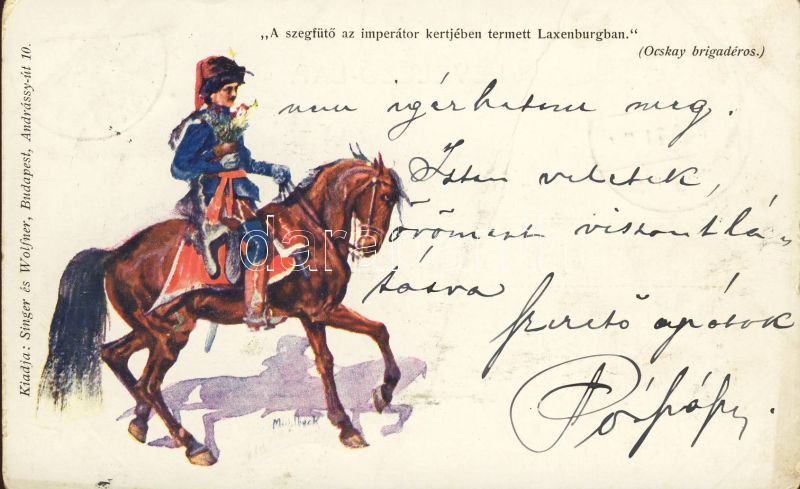 „A szegfűtő az imperátor kertjében termett Laxenburgban."
(Ocskay brigadéros.)
Kiadja: Singer és Wolfner, Budapest, Andrássy-út 10.
nem igérhetem meg.
Isten veletek,
örömest viszontlá-
tásra
szerető apátok
darabanth